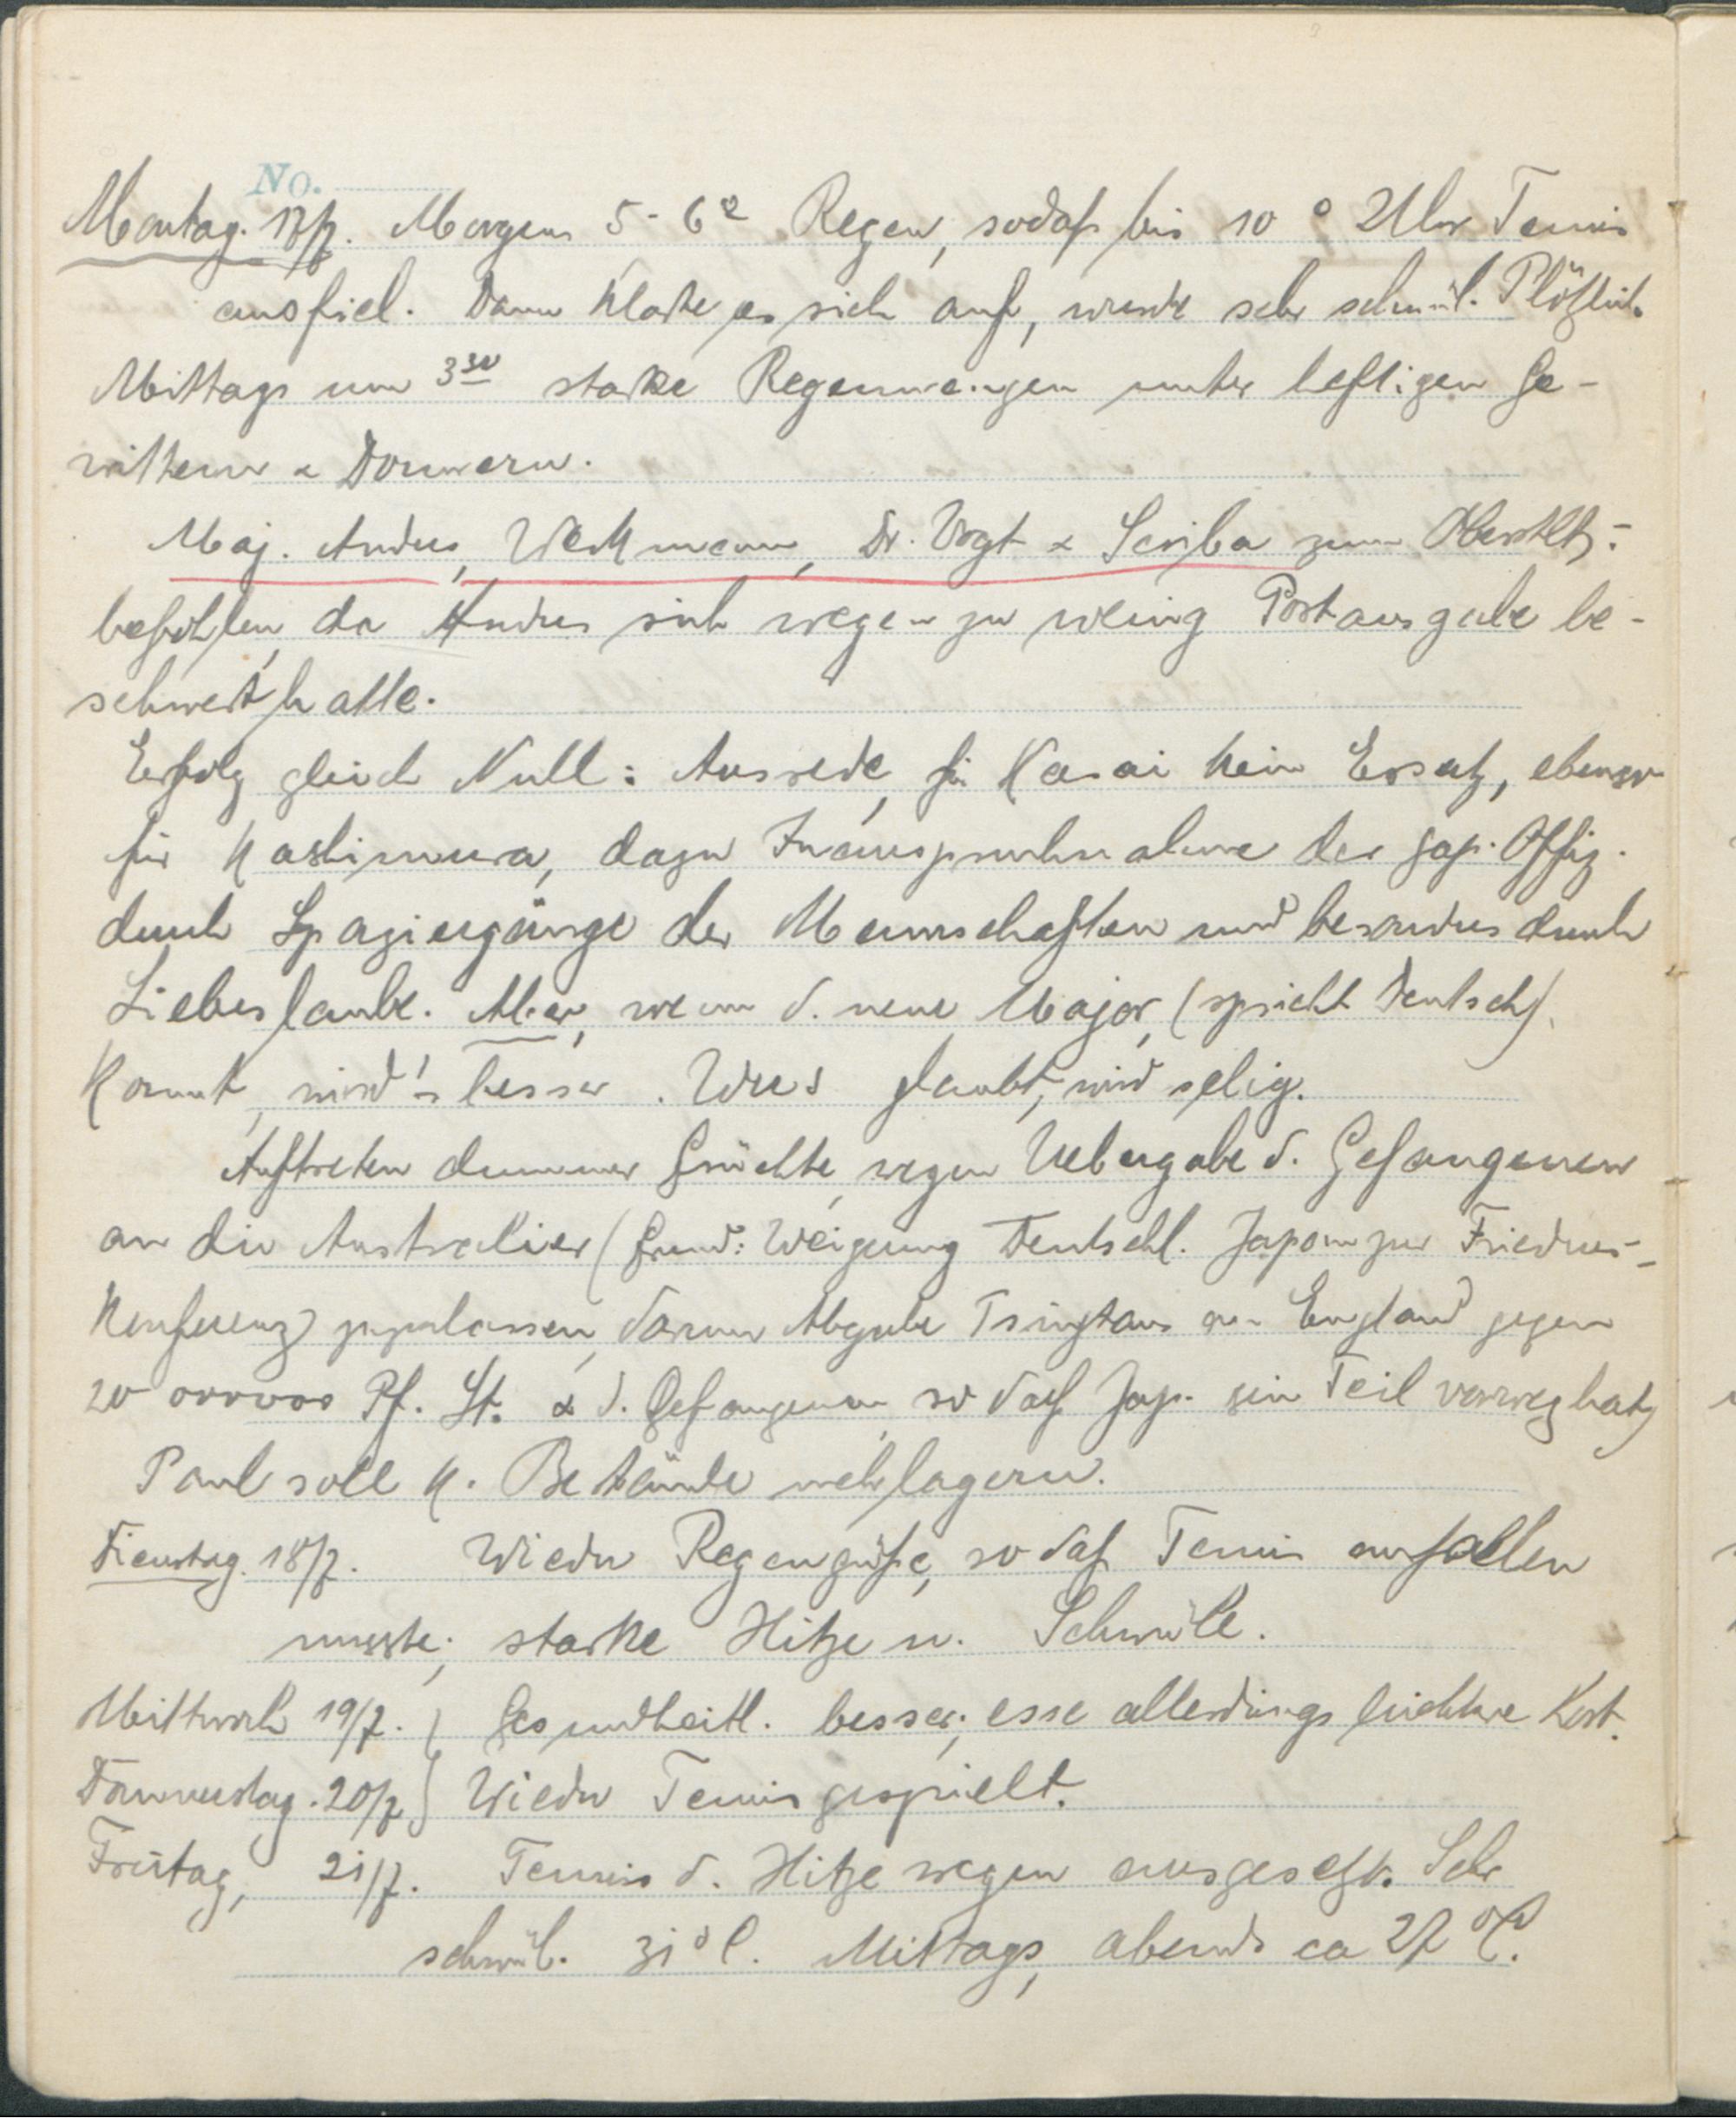 No.
Montag. 17/7. Morgens 5-6° Regen, sodaß bis 10° Uhr Tennis
ausfiel. Dann klärte es sich auf, wurde sehr schwül. Plötzlich
Mittags um 3³⁰ starke Regenmengen unter heftigen Ge-
wittern & Donnern.
Maj. Anders, Weckmann, Dr. Vogt & Scriba zum Oberstlt.
befohlen, da Anders sich wegen zu wenig Postausgabe be-
schwert hatte.
Erfolg gleich Null: Ausrede, für Kasai kein Ersatz, ebenso
für Kashimura, dazu Inanspruchnahme der jap. Offiz.
durch Spaziergänge der Mannschaften und besonders durch
Liebeslaube. Aber, wenn d. neue Major, (spricht Deutsch)
kommt, wird's besser. Wer's glaubt, wird selig.
Auftreten dummer Gerüchte, wegen Uebergabe d. Gefangenen
an die Australier (Grund: Weigerung Deutschl. Japan zur Friedens-
Konferenz) zuzulassen, darum Abgabe Tsingtaus an England gegen
20 000000 Pf. St. & d. Gefangenen, so daß Jap. sein Teil vorweg hat)
Paul soll K. Bestände mehr lagern.
Dienstag. 18/7. Wieder Regengüße, so daß Tennis ausfallen
musste; starke Hitze u. Schwüle.
Mittwoch 19/7. } Gesundheitl. besser; esse allerdings leichtere Kost.
Donnerstag. 20/7 } Wieder Tennis gespielt.
Freitag, 21/7. Tennis d. Hitze wegen ausgesetzt. Sehr
schwül. 31° C. Mittags, abends ca 27 °C.